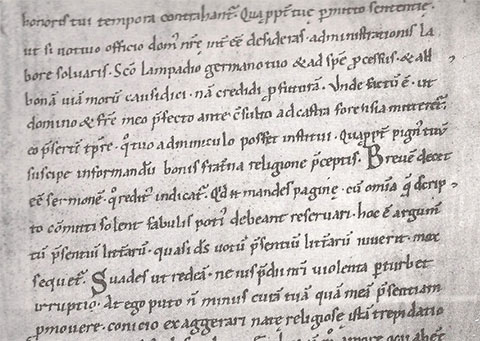 honoris tui tempora contrahant᷑. Qua ꝓpt᷑ tue ꝑmitto sententie.
ut si novuo officio dom̄ nr̄ē int̄ ēē desideras. administrationis la
bore solvaris. Sc̄o lampadio germano tuo & ad spē ꝓcessit. & ad
bonā viā morū causidici. nā credidi ꝓfuturā. Unde factū ē. ut
domino & fr̄ē meo p̄fecto ante c̄sulto ad castra forensia mitteret᷑.
co p̄sertī tp̄re. q̊ tuo adminiculo posset institui. Quaꝓpt᷑ pign᷑ tuū
suscipe informandū bonis frat̄na religione p̄ceptis. Brevē decet
ēē sermonē. q̊ redit᷑ indicat᷑. Qd̄ si mandes pagine. cū om̄ia q̄ scrip
to cōmitti solent fabulis poti᷑ debeant reservari. hoc ē argum̄
tū p̄sentiū litt̄arū. quasi d̄s votū p̄sentiū litt̄arū iuverit. mox
sequet᷑. Suades ut redeā. ne iusp̄diū mī violenta ꝑturbet
irruptio. At ego puto n̄ minus curā tuā quā meā p̄sentiam
ꝓmovere. conicio exaggerari na te religiose istā trepidatio